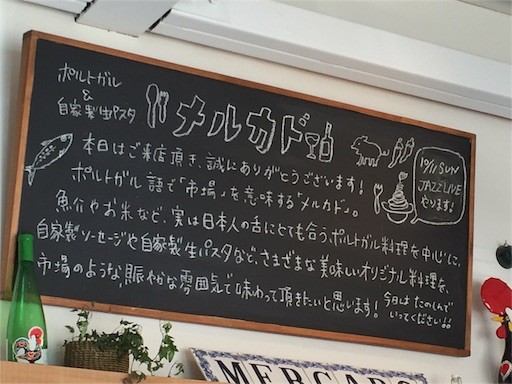 ポルトガル
&
自家製生パスタ
メルカド
10/11 SUN
JAZZ LIVE
やります!
本日はご来店頂き、誠にありがとうございます!
ポルトガル語で「市場」を意味する「メルカド」。
魚介やお米など、実は日本人の舌にとても合う、ポルトガル料理を中心に、
自家製ソーセージや自家製生パスタなど、さまざまな美味しいオリジナル料理を、
市場のような、賑やかな雰囲気で味わって頂きたいと思います!
今日はたのしんで
いってください!!
MERCADO